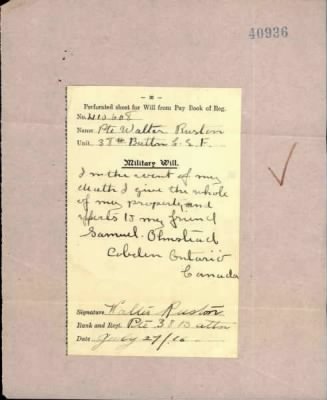 40936
Perforated sheet for Will from Pay Book of Reg.
No. 410608
Name Pte Walter Ruston
Unit. 38th Battn C. E. F.
Military Will.
In the event of my
death I give the whole
of my property and
effects to my friend
Samuel. Olmstead
Cobden Ontario
Canada
Signature Walter Ruston
Rank and Regt. Pte 38 Battn
Date July 27/16